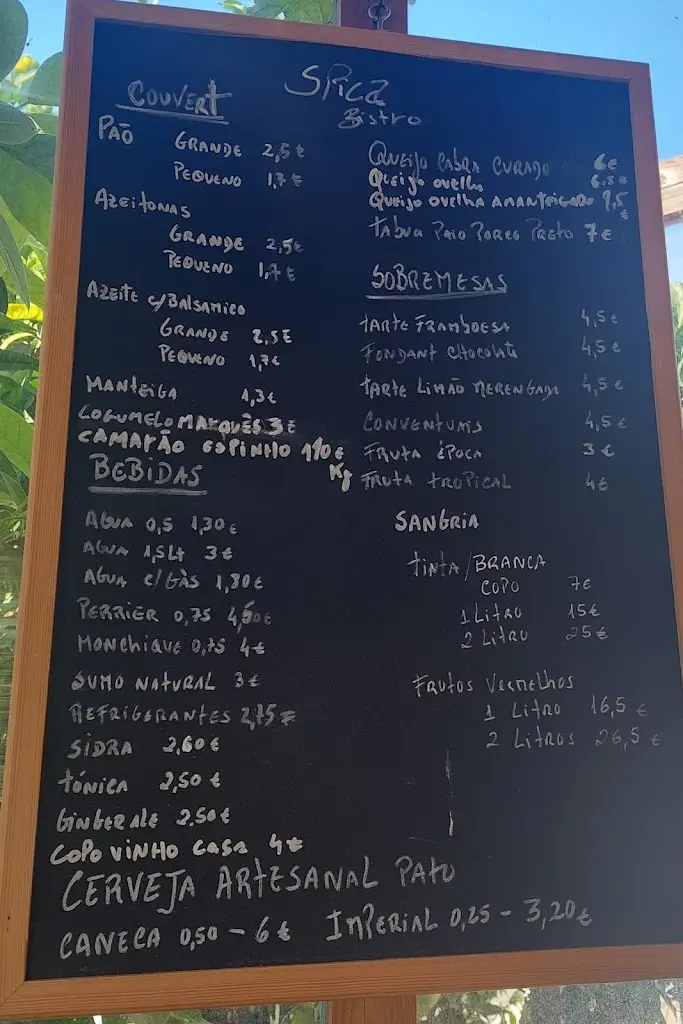 Spica
Bistro
COUVERT
PÃO GRANDE 2,5€
PEQUENO 1,7€
AZEITONAS
GRANDE 2,5€
PEQUENO 1,7€
AZEITE c/BALSAMICO
GRANDE 2,5€
PEQUENO 1,7€
MANTEIGA 1,3€
COGUMELO MARQUÊS 3€
CAMARÃO ESPINHO 110€
Kg
QUEIJO CABRA CURADO 6€
QUEIJO OVELHA
QUEIJO OVELHA AMANTEIGADO 9,5
€
TABUA PAIO PORCO PRETO 7€
SOBREMESAS
TARTE FRAMBOESA 4,5€
FONDANT CHOCOLATE 4,5€
TARTE LIMÃO MERENGADA 4,5€
CONVENTUAIS 4,5€
FRUTA ÉPOCA 3€
FRUTA TROPICAL 4€
BEBIDAS
AGUA 0,5 1,30€
AGUA 1,5Lt 3€
AGUA c/GÁS 1,80€
PERRIER 0,75 4,50€
MONCHIQUE 0,75 4€
SUMO NATURAL 3€
REFRIGERANTES 2,75€
SIDRA 2,60€
TÓNICA 2,50€
GINGERALE 2.50€
COPO VINHO CASA 4€
SANGRIA
TINTA/BRANCA
COPO 7€
1 LITRO 15€
2 LITRO 25€
FRUTOS VERMELHOS
1 LITRO 16,5€
2 LITROS 26,5€
CERVEJA ARTESANAL PATO
CANECA 0,50 – 6€ IMPERIAL 0,25 – 3,20€